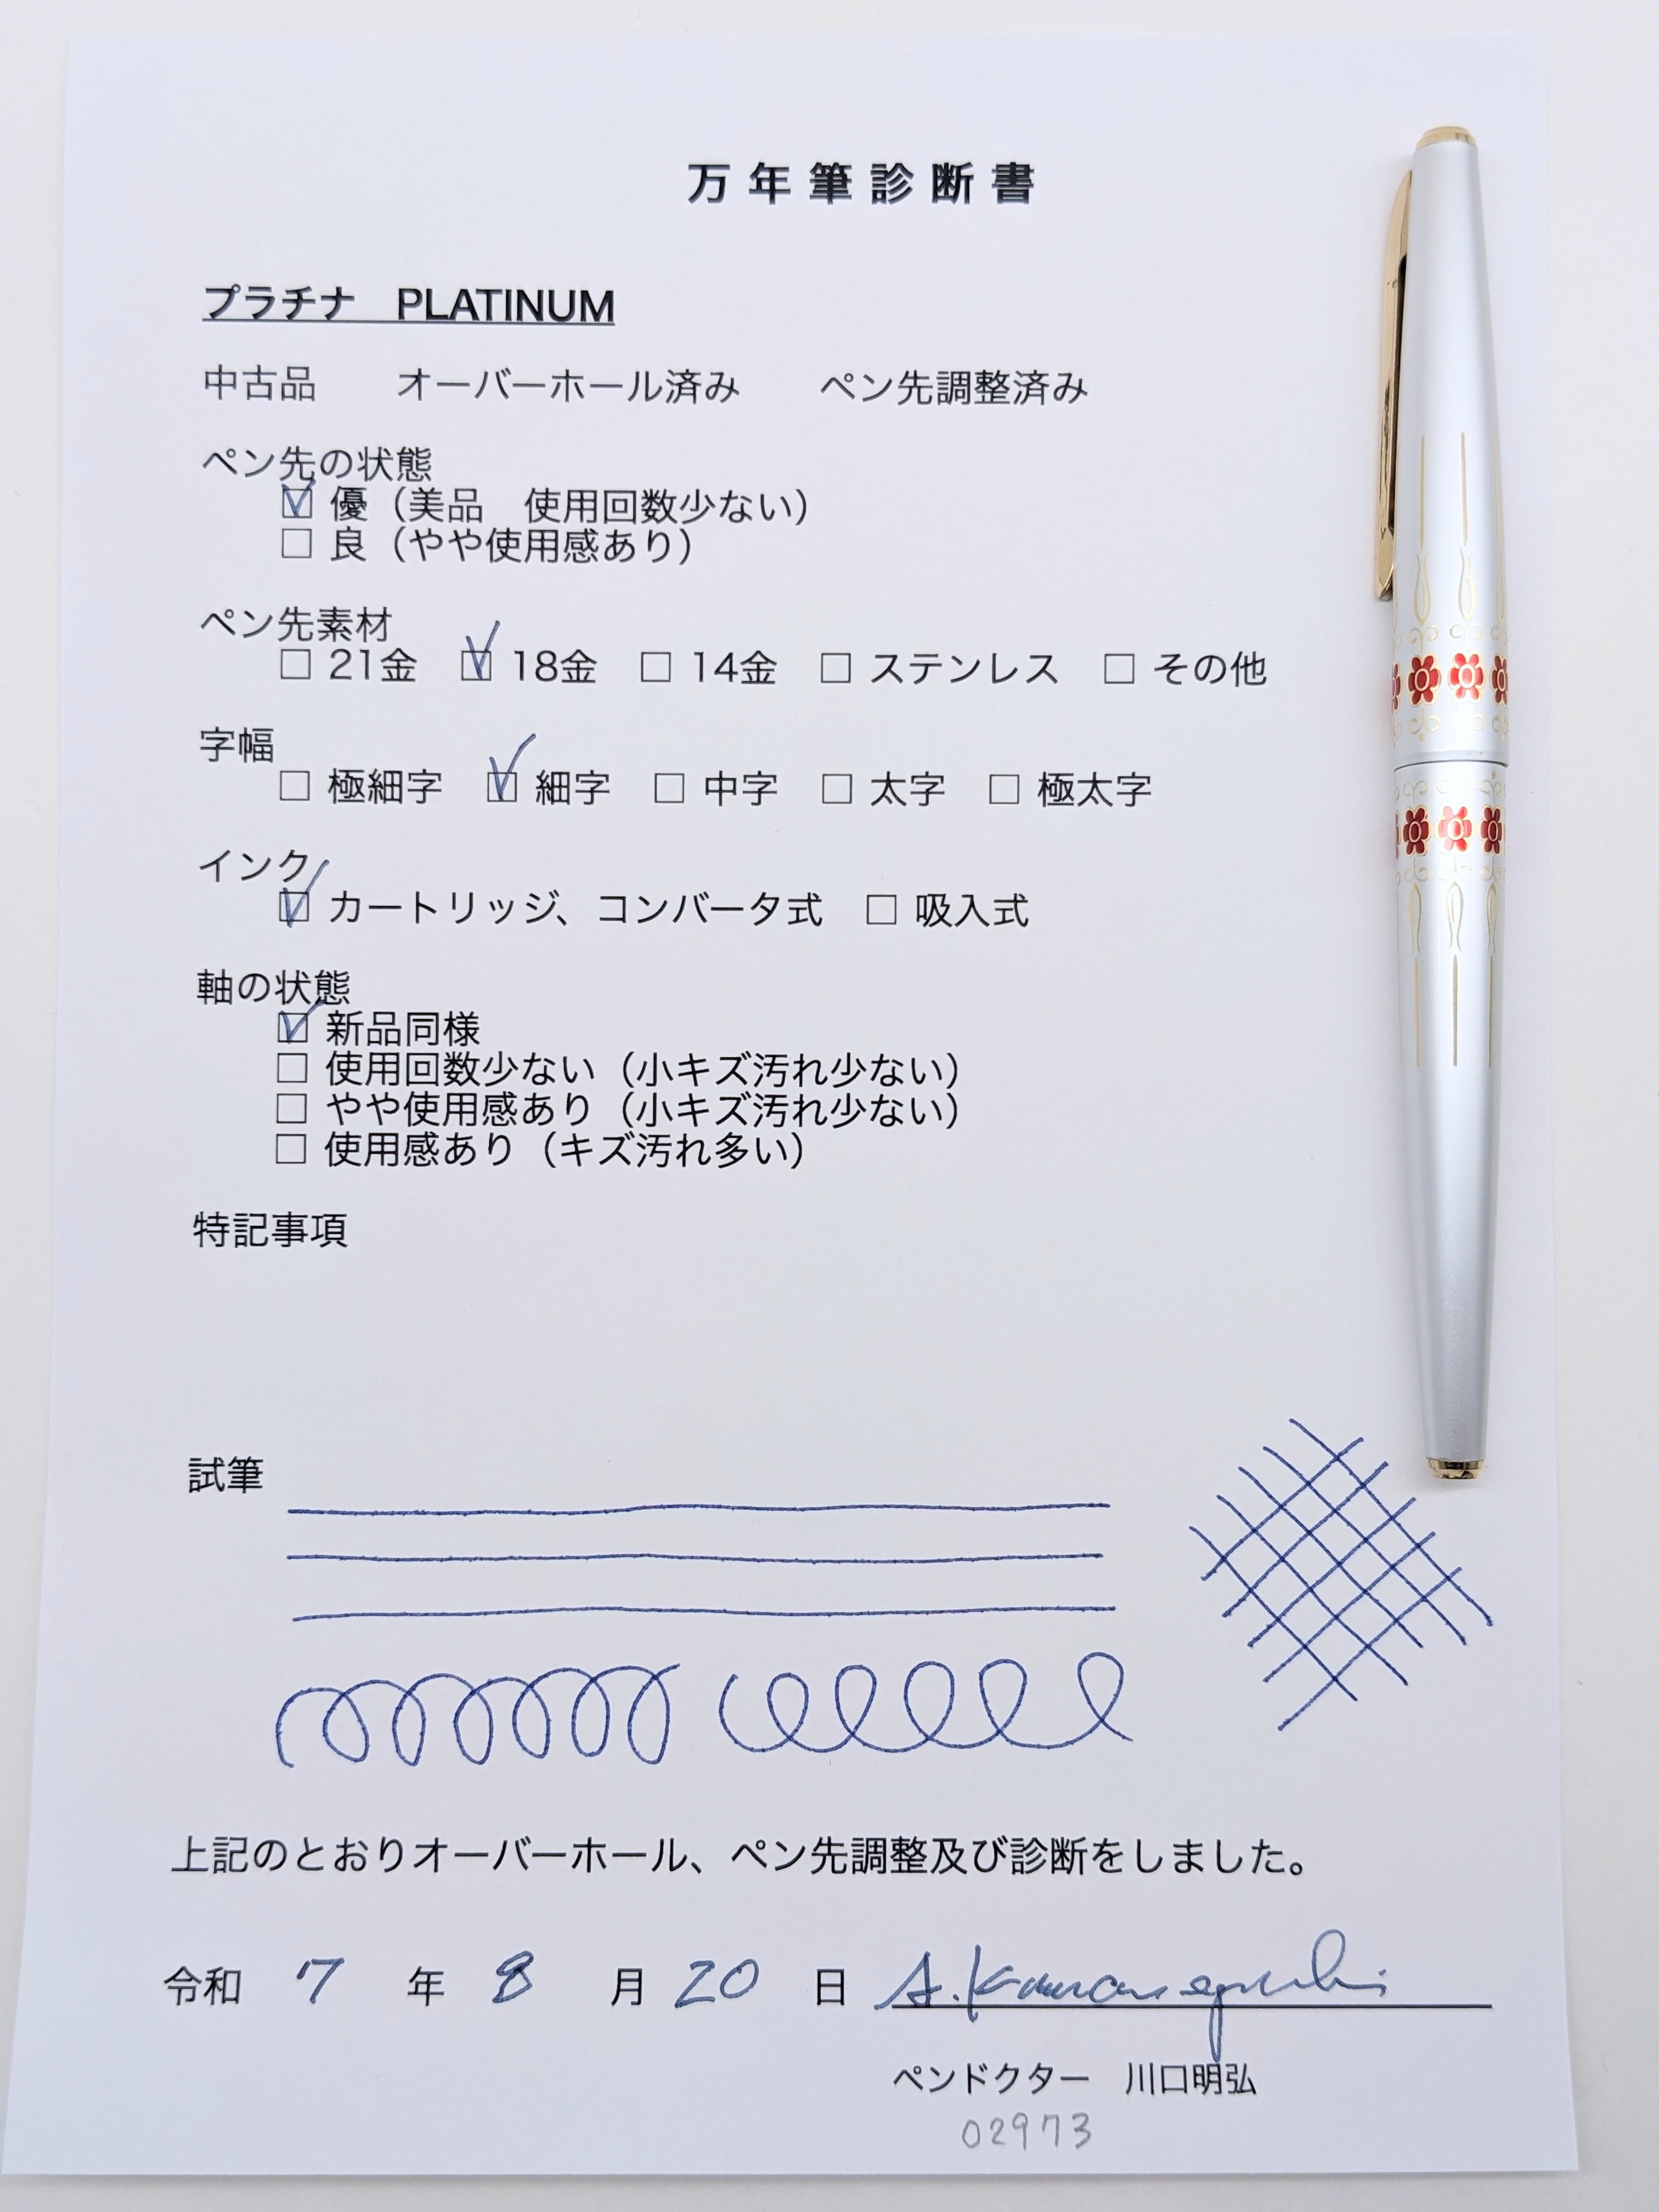 万年筆診断書
プラチナ　PLATINUM
中古品　　オーバーホール済み　　ペン先調整済み
ペン先の状態
☑ 優（美品　使用回数少ない）
□ 良（やや使用感あり）
ペン先素材
□ 21金　☑ 18金　□ 14金　□ ステンレス　□ その他
字幅
□ 極細字　☑ 細字　□ 中字　□ 太字　□ 極太字
インク
☑ カートリッジ、コンバータ式　□ 吸入式
軸の状態
☑ 新品同様
□ 使用回数少ない（小キズ汚れ少ない）
□ やや使用感あり（小キズ汚れ少ない）
□ 使用感あり（キズ汚れ多い）
特記事項
試筆
上記のとおりオーバーホール、ペン先調整及び診断をしました。
令和　7　年　8　月　20　日　A. Kawaguchi
ペンドクター　川口明弘
02973